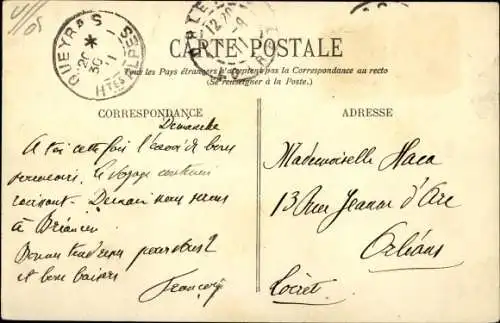 QUEYRAS
*
20
30
11
HTES ALPES
CARTE POSTALE
Tous les Pays étrangers n'acceptent pas la Correspondance au recto
(Se renseigner à la Poste.)
CORRESPONDANCE
ADRESSE
Dimanche
A toi cette fois l'envoi de bons
souvenirs. Le voyage continue
Demain nous serons
à Briançon
Bonnes tendresses pour vous 2
et bons baisers
François
Mademoiselle Haca
13 Rue Jeanne d'Arc
Orléans
Loiret